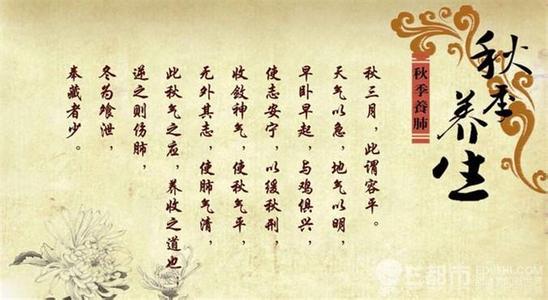 秋季养生
秋季养肺
秋三月，此谓容平。
天气以急，地气以明，
早卧早起，与鸡俱兴，
使志安宁，以缓秋刑，
收敛神气，使秋气平，
无外其志，使肺气清，
此秋气之应，养收之道也，
逆之则伤肺，
冬为飧泄，
奉藏者少。